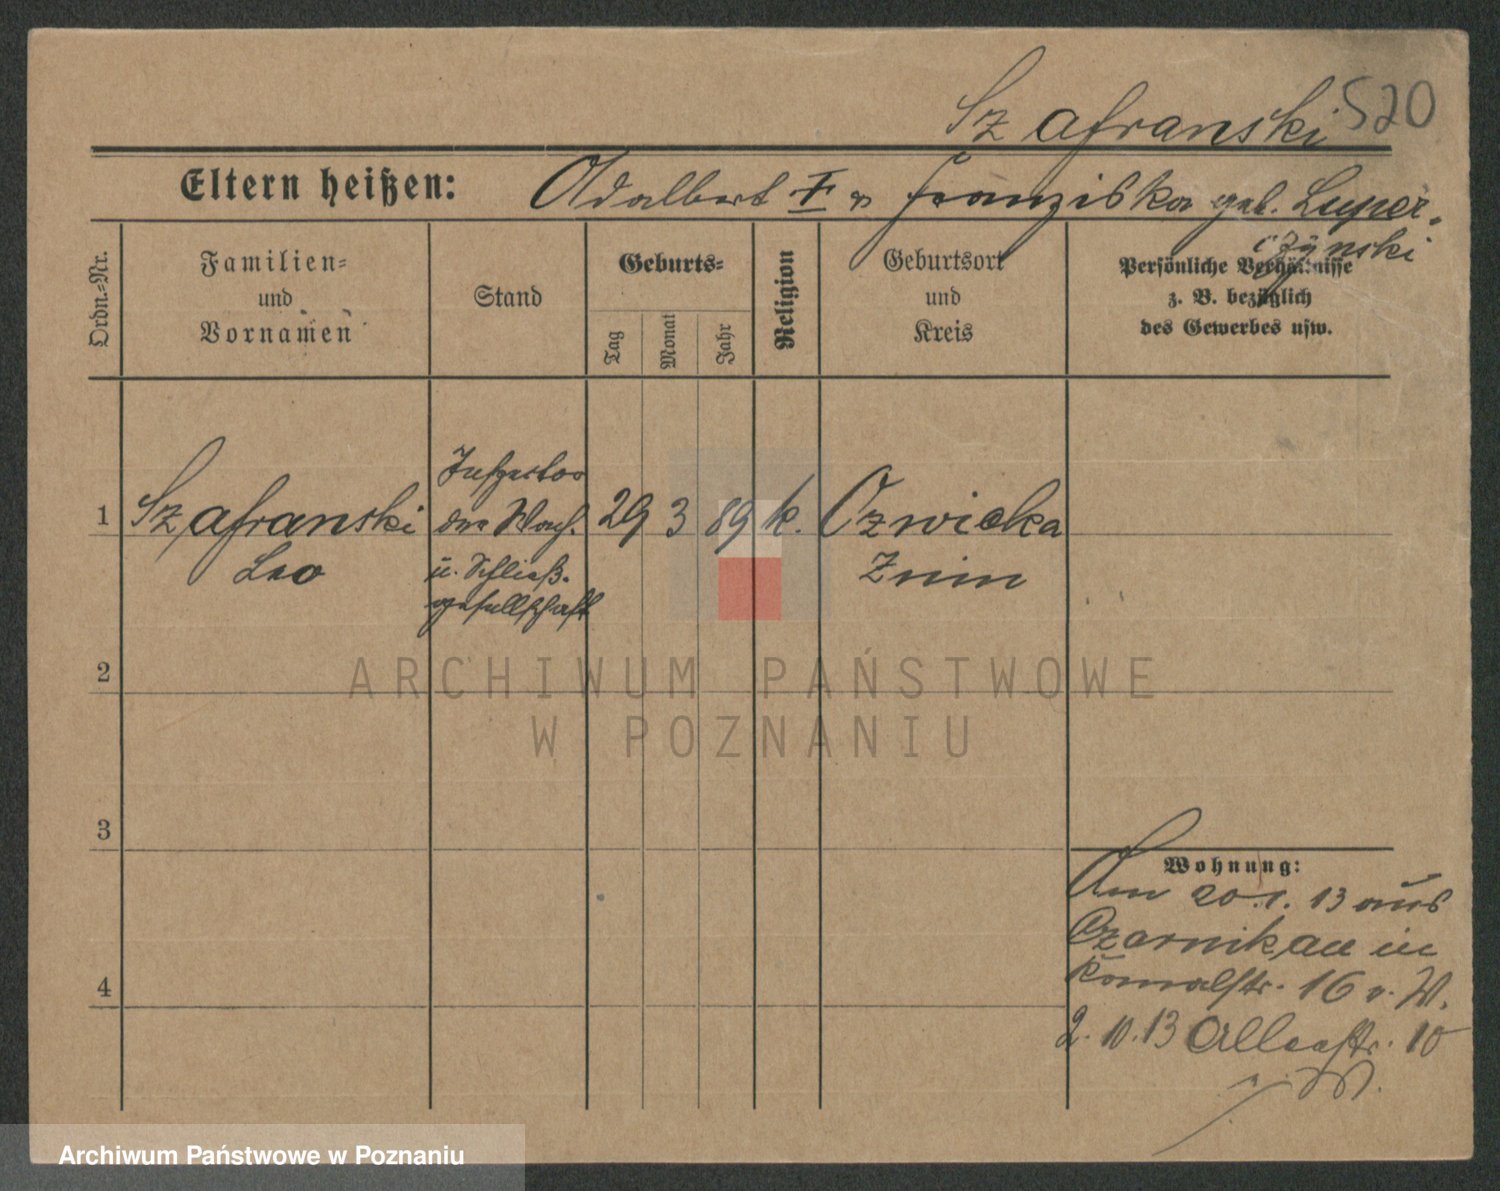 Szafranski 520
Eltern heißen: Adalbert † u Franziska geb. Luper-
czynski
Ordn.-Nr.
Familien-
und
Vornamen
Stand
Geburts-
Tag
Monat
Jahr
Religion
Geburtsort
und
Kreis
Persönliche Verhältnisse
z. B. bezüglich
des Gewerbes usw.
1
Szafranski
Leo
Inspector
der Wach.
u. Schließ-
gesellschaft
29
3
89
k.
Ozwicka
Znin
2
3
4
Wohnung:
Am 20.1.13 aus
Czarnikau in
16 v. W.
2.10.13 Alleestr. 10
ARCHIWUM PAŃSTWOWE
W POZNANIU
Archiwum Państwowe w Poznaniu